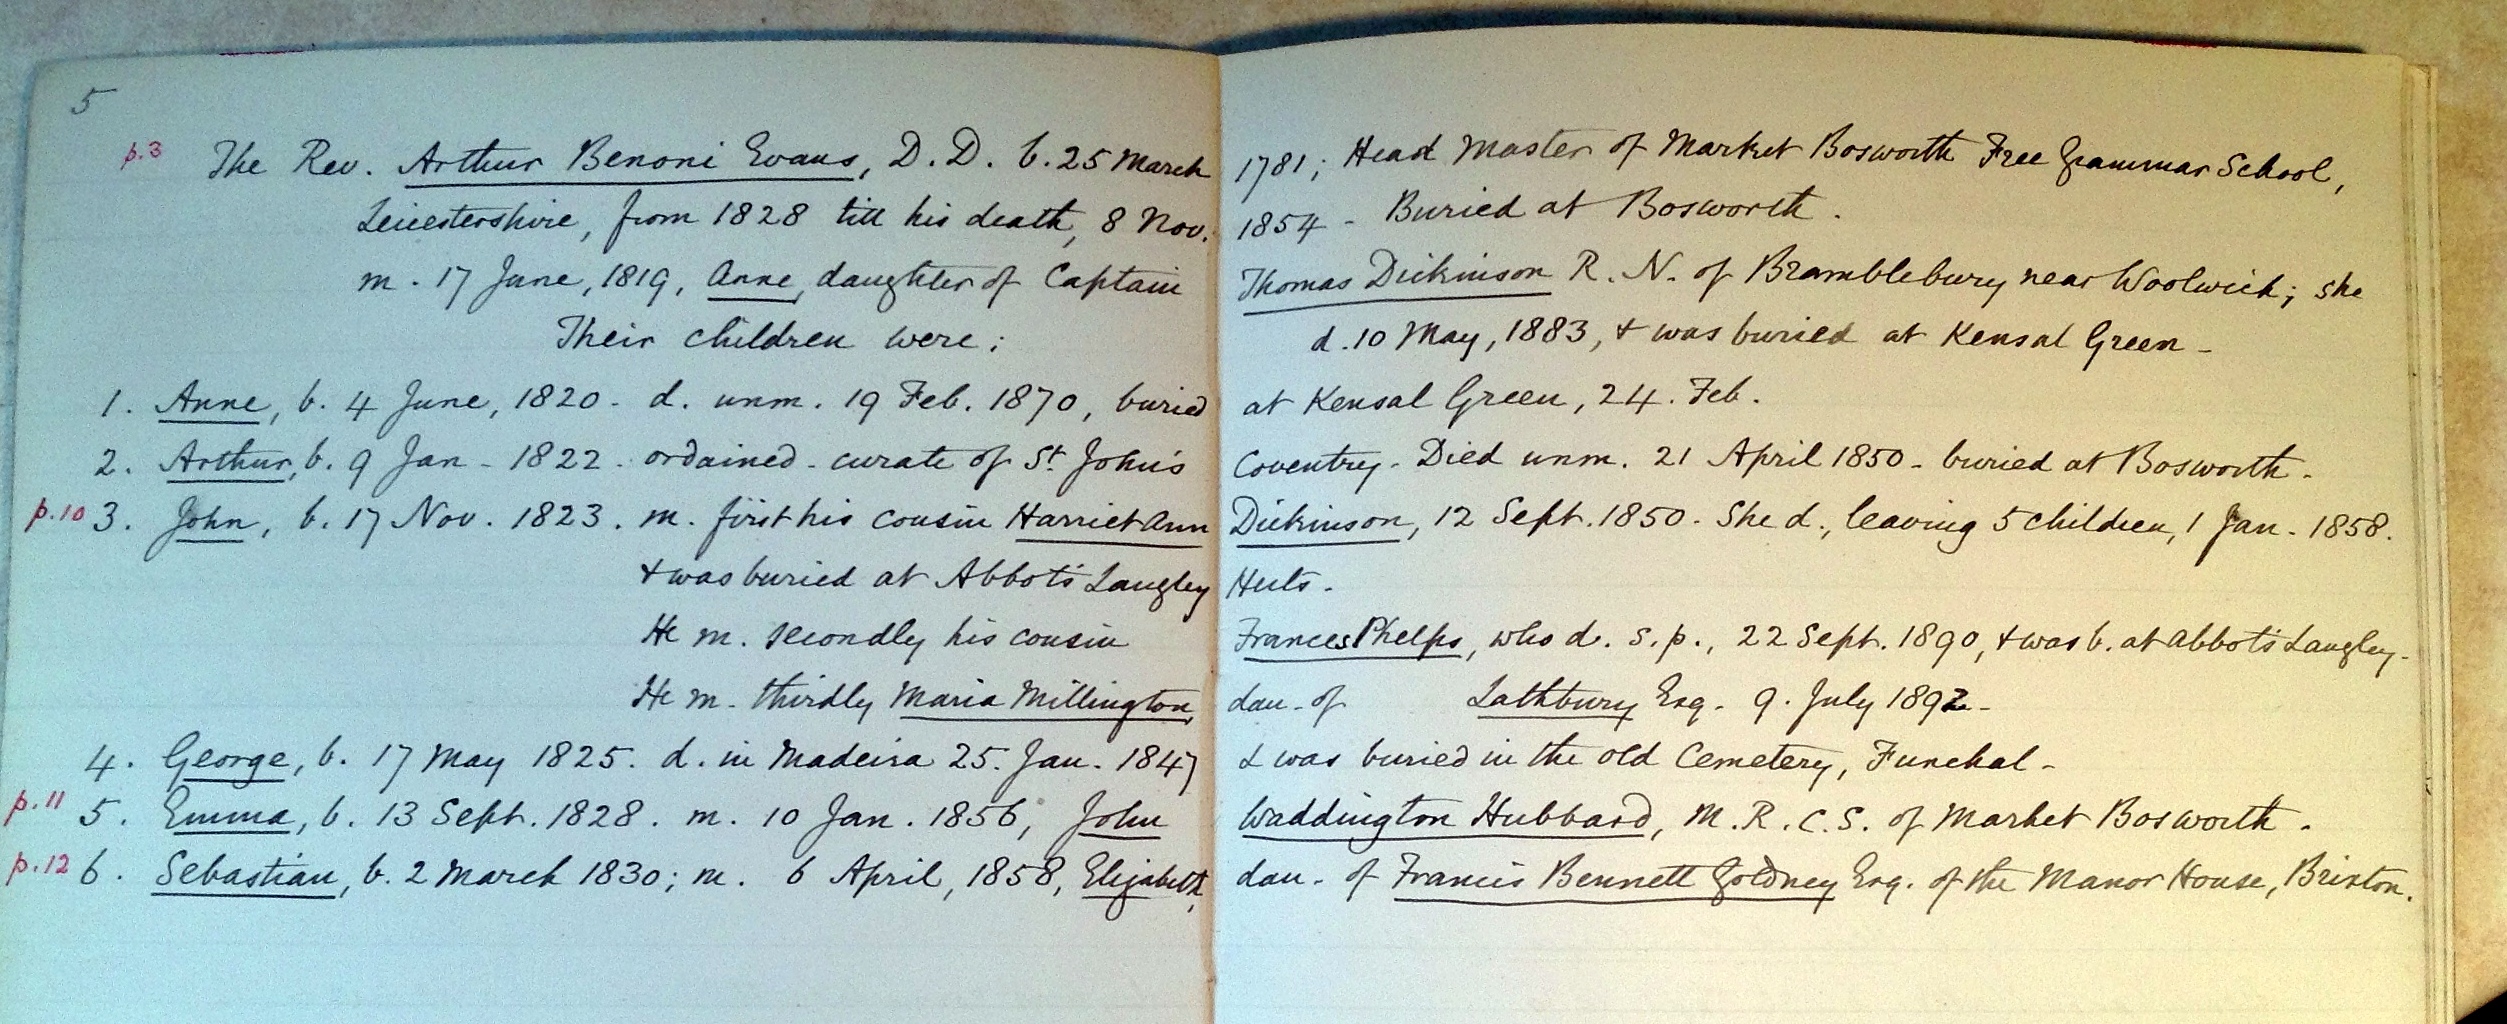 5
p.3 The Rev. Arthur Benoni Evans, D.D. b. 25 March 1781; Head Master of Market Bosworth Free Grammar School,
Leicestershire, from 1828 till his death, 8 Nov. 1854 - Buried at Bosworth.
m. 17 June, 1819, Anne, daughter of Captain Thomas Dickinson R.N. of Bramblebury near Woolwich; she
Their children were; d. 10 May, 1883, & was buried at Kensal Green -
1. Anne, b. 4 June, 1820 - d. unm. 19 Feb. 1870, buried at Kensal Green, 24. Feb.
2. Arthur, b. 9 Jan - 1822 - ordained - curate of St. John's Coventry - Died unm. 21 April 1850 - buried at Bosworth -
p.10 3. John, b. 17 Nov. 1823. m. first his cousin Harriet Ann Dickinson, 12 Sept. 1850 - She d., leaving 5 children, 1 Jan - 1858.
& was buried at Abbot's Langley Herts -
He m. secondly his cousin Frances Phelps, who d. s.p., 22 Sept. 1890, & was b. at Abbot's Langley -
He m - thirdly Maria Millington, dau - of Lathbury Esq - 9. July 1892 -
4. George, b. 17 May 1825. d. in Madeira 25. Jan - 1847 & was buried in the old Cemetery, Funchal -
p.11 5. Emma, b. 13 Sept. 1828. m. 10 Jan. 1856, John Waddington Hubbard, M.R.C.S. of Market Bosworth.
p.12 6. Sebastian, b. 2 March 1830; m. 6 April, 1858, Elizabeth, dau - of Francis Bennett Goldney Esq. of the Manor House, Brixton.